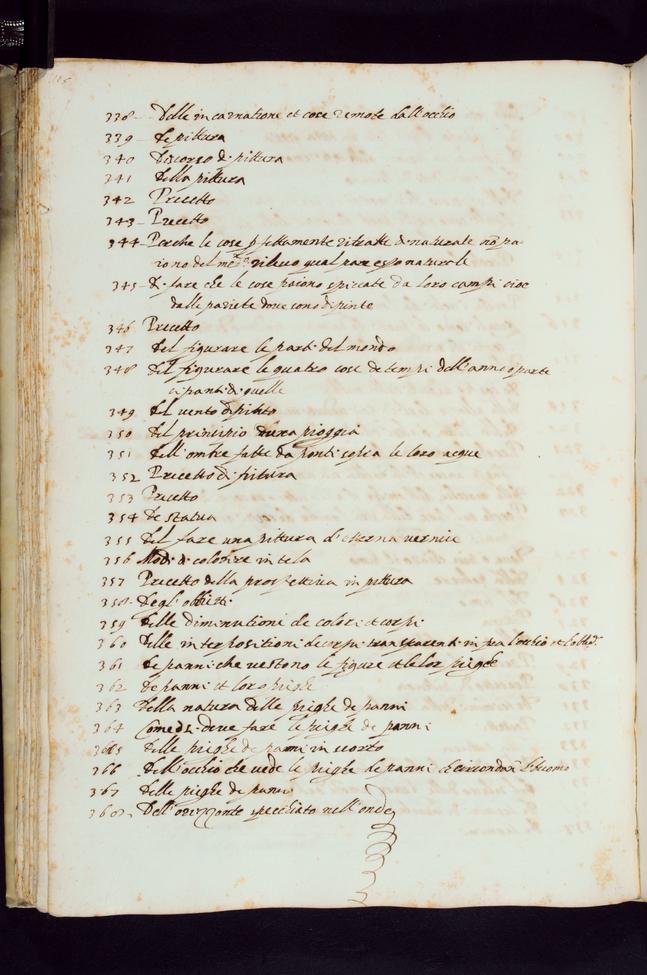 338 Delle incarnatione et cose remote dall occhio
339 De pittura
340 Discorso di pittura
341 Della pittura
342 Precetto
343 Precetto
344 Perche le cose pfettamente ritratte di naturale nõ pa-
iono del med.º rilievo qual pare esso naturale
345 Di fare che le cose paiono spiccate da loro campi cioe
dalle pariete dove sono dipinte
346 Precetto
347 Del figurare le parti del mondo
348 Del figurare le quatro cose de tempi dell'anno o parte
cipanti di quelle
349 Del vento dipinto
350 Del principio d'una pioggia
351 Dell'ombre fatte da ponti sopra le loro acque
352 Precetto di pittura
353 Precetto
354 De statua
355 Del fare una pittura d'eterna vernice
356 Modi di colorire in tela
357 Precetto della prospettiva in pittura
358 Degl'obbietti
359 Delle diminutioni de colori et corpi
360 Delle interpositioni de corpi transparenti in fra l'occhio et l'obbi.º
361 De panni che vestono le figure et le lor pieghe
362 De panni et loro pieghe
363 Della natura delle pieghe de panni
364 Come si deve fare le pieghe de panni
365 Delle pieghe de panni in scorto
366 Dell'occhio che vede le pieghe de panni che circondan l'huomo
367 Delle pieghe de panni
368 Dell'orizzonte specchiato nell'onde